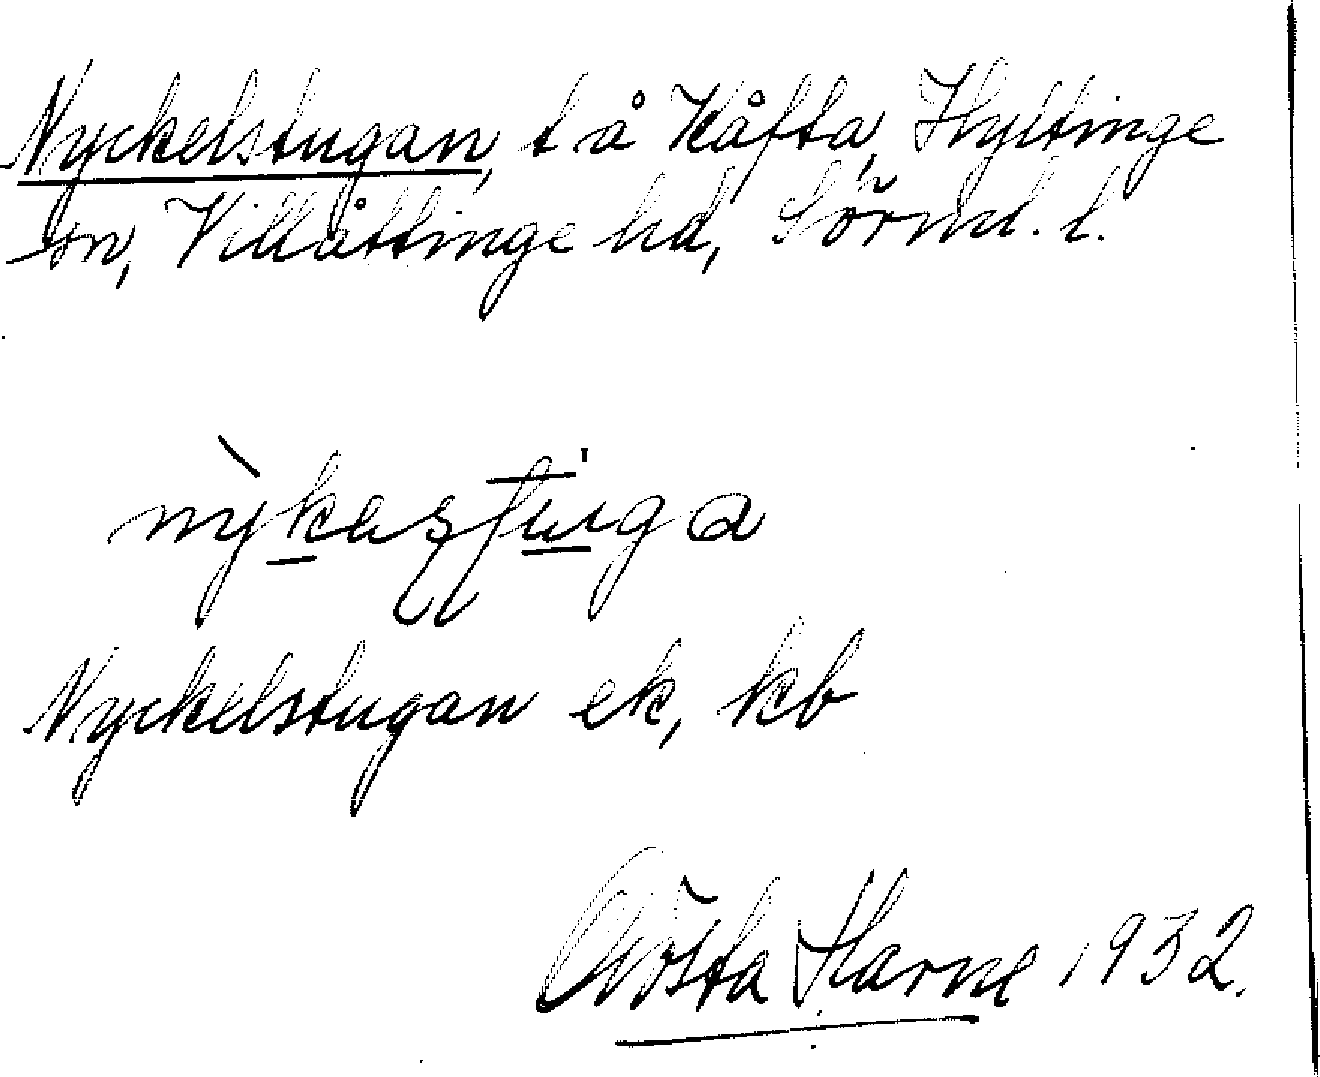 Nyckelstugan, t å Kåfta, Hyltinge
sn, Villåttinge hd, Sörml. l.
Nyckelstugan ek, kb
Gösta Harne 1932.